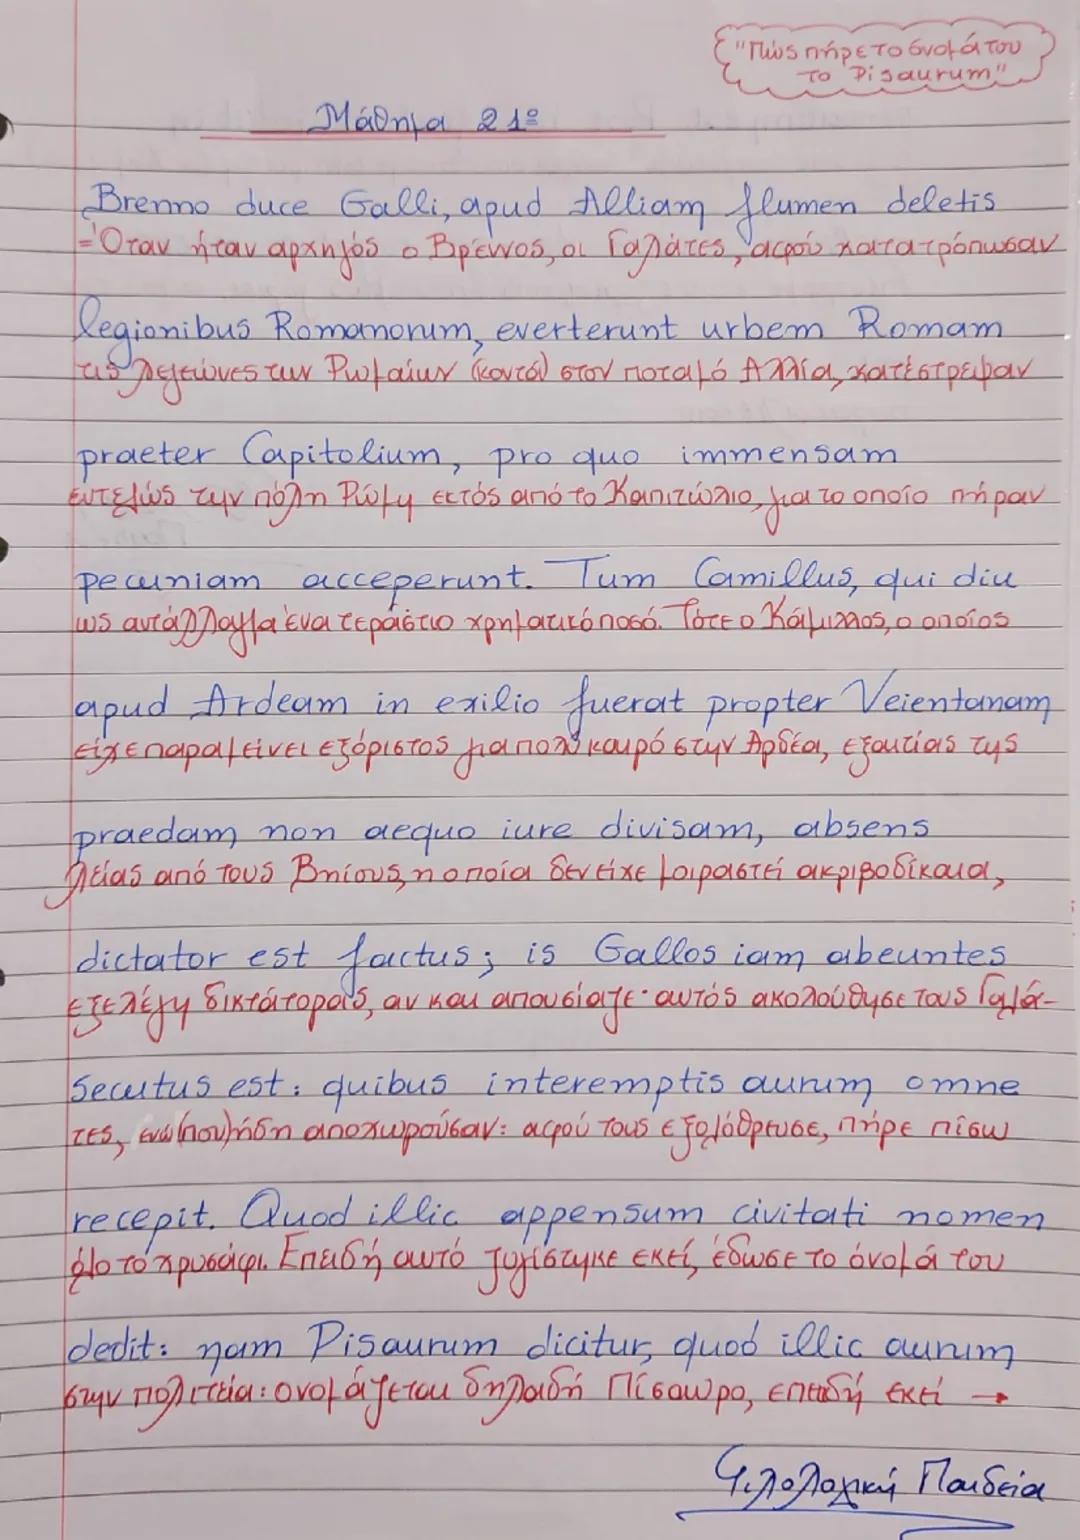 "Πώς πήρε το όνομά του
το Pisaurum"
Μάθημα 21ο
Brenno duce Galli, apud Alliam flumen deletis
=Όταν ήταν αρχηγός ο Βρέννος, οι Γαλάτες, αφού κατατρόπωσαν
legionibus Romanorum, everterunt urbem Romam
τις λεγεώνες των Ρωμαίων (κοντά) στον ποταμό Αλλία, κατέστρεψαν
praeter Capitolium, pro quo immensam
εντελώς την πόλη Ρώμη εκτός από το Καπιτώλιο, για το οποίο πήραν
pecuniam acceperunt. Tum Camillus, qui diu
ως αντάλλαγμα ένα τεράστιο χρηματικό ποσό. Τότε ο Κάμιλλος, ο οποίος
apud Ardeam in exilio fuerat propter Veientanam
είχε παραμείνει εξόριστος για πολύ καιρό στην Αρδέα, εξαιτίας της
praedam non aequo iure divisam, absens
λείας από τους Βηίους, η οποία δεν είχε μοιραστεί ακριβοδίκαια,
dictator est factus; is Gallos iam abeuntes
εξελέγη δικτάτορας, αν και απουσίαζε· αυτός ακολούθησε τους Γαλά-
secutus est: quibus interemptis aurum omne
τες, ενώ (που) ήδη αποχωρούσαν: αφού τους εξολόθρευσε, πήρε πίσω
recepit. Quod illic appensum civitati nomen
όλο το χρυσάφι. Επειδή αυτό ζυγίστηκε εκεί, έδωσε το όνομά του
dedit: nam Pisaurum dicitur, quod illic aurum
στην πολιτεία: ονομάζεται δηλαδή Πίσαυρο, επειδή εκεί →
Φιλολογική Παιδεία